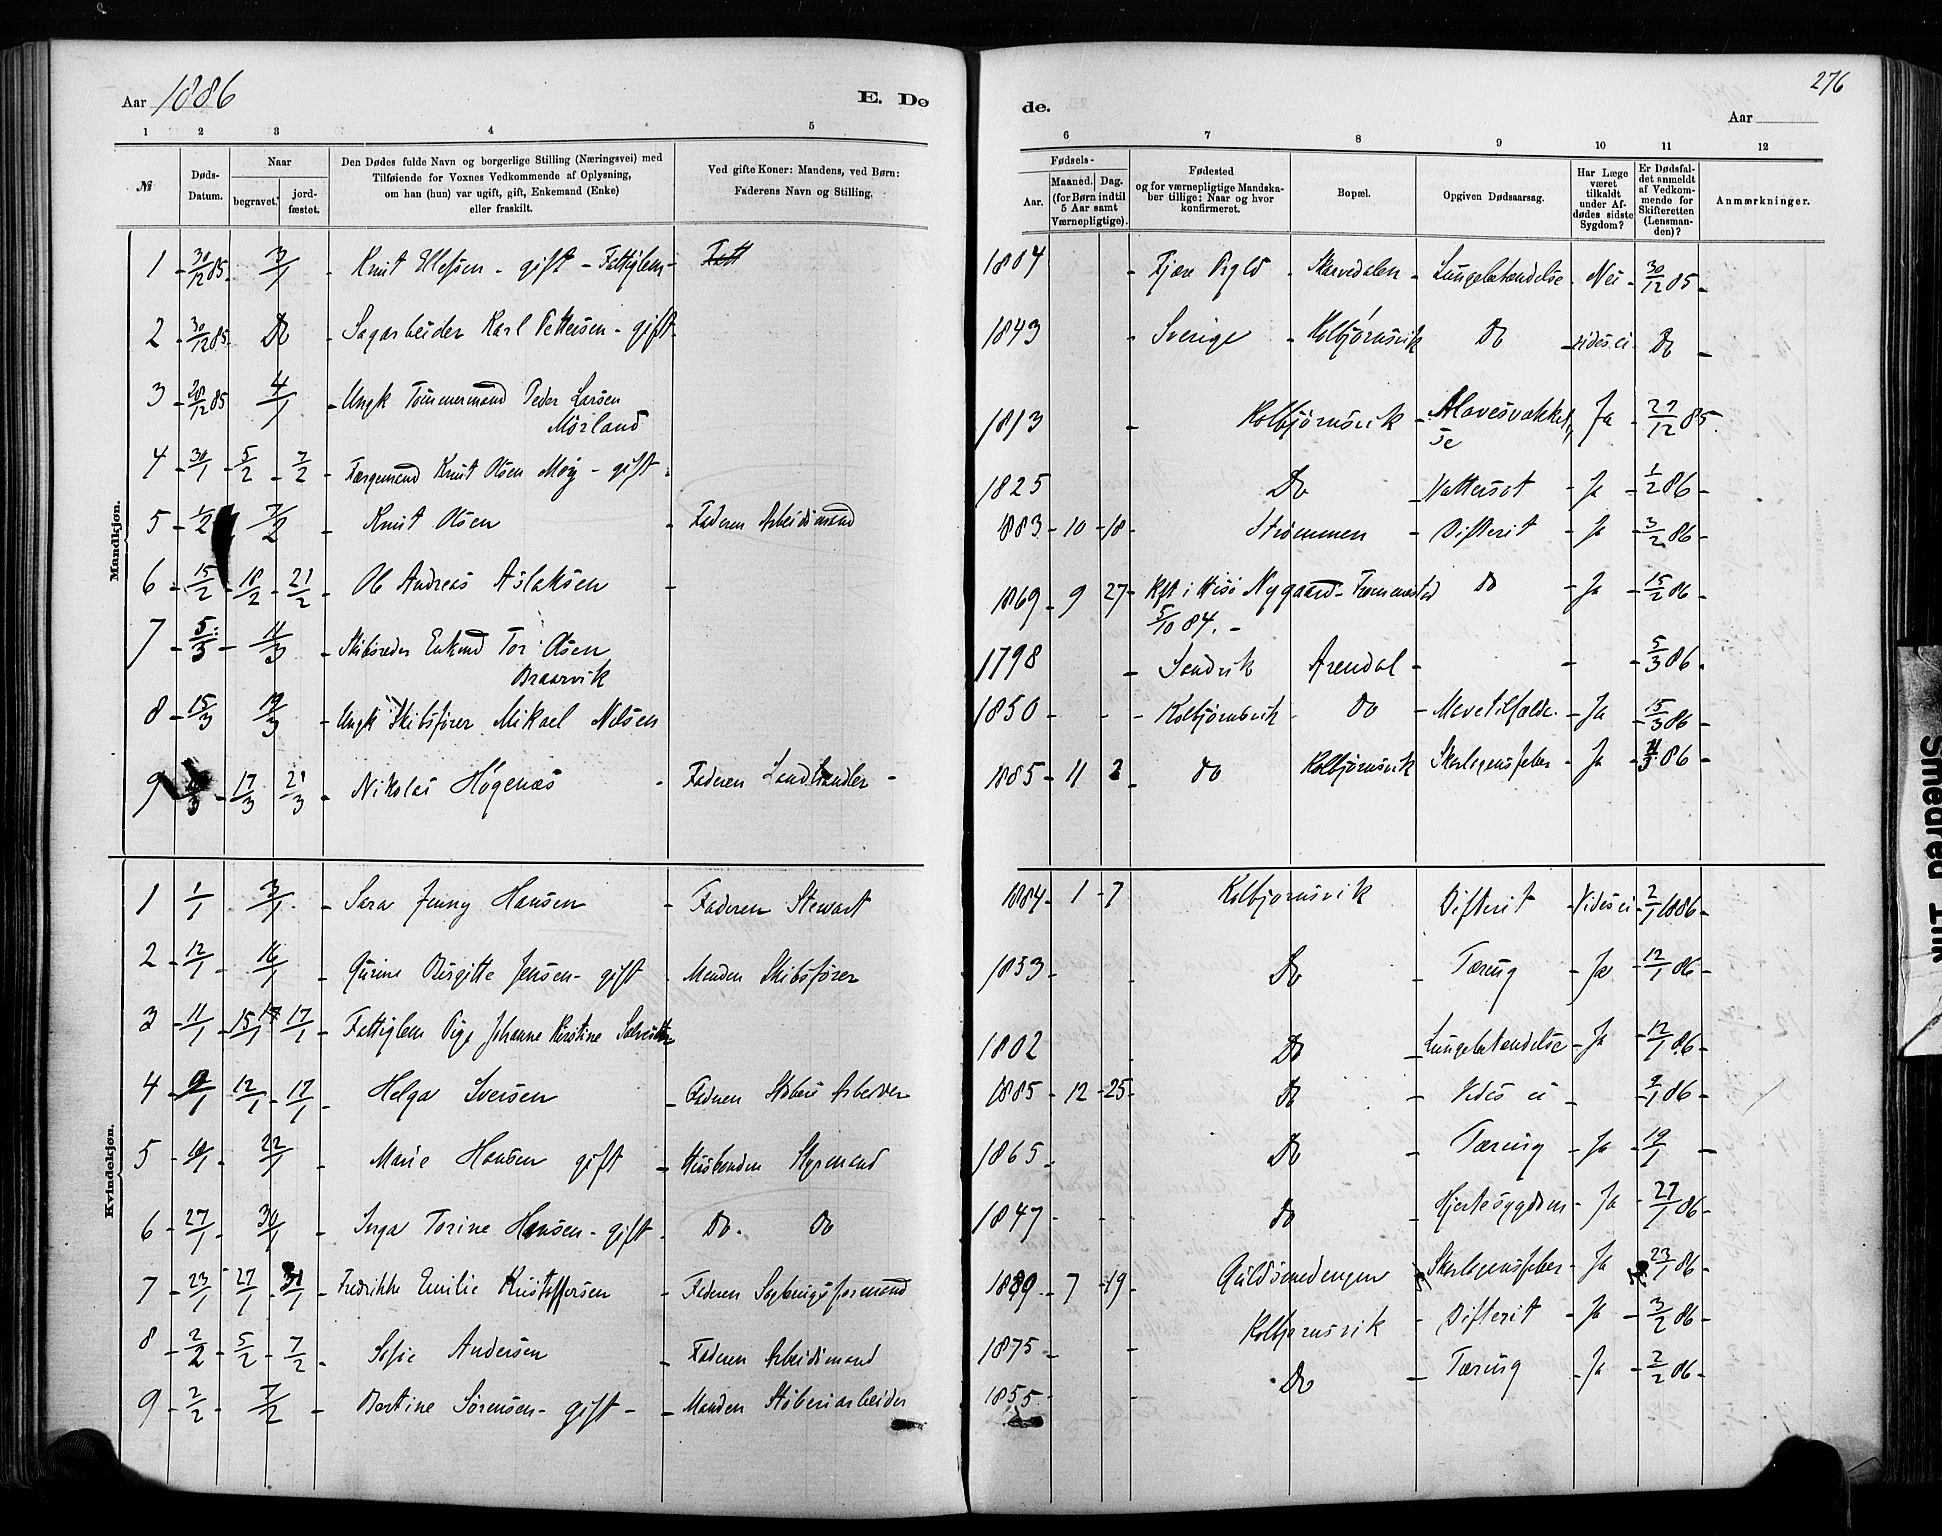 Aar 1886
E. Dø
de.
276
Aar
1 2 3 4 5 6 7 8 9 10 11 12
№
Døds-Datum.
Naar
begravet.
jord-fæstet.
Den Dødes fulde Navn og borgerlige Stilling (Næringsvei) med
Tilføiende for Voxnes Vedkommende af Oplysning,
om han (hun) var ugift, gift, Enkemand (Enke)
eller fraskilt.
Ved gifte Koner: Mandens, ved Børn:
Faderens Navn og Stilling.
Fødsels-
Aar.
Maaned. Dag.
(for Børn indtil
5 Aar samt
Værnepligtige).
Fødested
og for værnepligtige Mandska-
ber tillige: Naar og hvor
konfirmeret.
Bopæl.
Opgiven Dødsaarsag.
Har Læge
været
tilkaldt
under Af-
dødes sidste
Sygdom?
Er Dødsfal-
det anmeldt
af Vedkom-
mende for
Skifteretten
(Lensman-
den)?
Anmærkninger.
Mandkjøn.
1 - 30/12 85. 3/1 - Knut Olefsen - gift - Fattiglem - 1804 - Fjære Prgld - Lungebetændelse - Nei - 30/12 85 -
2 - 30/12 85. Do - Sagarbeider Karl Pettersen - gift - 1843 - Sverige - Kolbjørnsvik Do - vides ei - Do -
3 - 28/12 85 4/1 - Ungk Tømmermand Peder Larsen
Mørland 1813 - Kolbjørnsvik - Ja - 27/12 85.
4 - 30/1 - 5/2 - 7/2 - Færgemand Knut Olsen Møy - gift - 1825 Do - Vattersot - Ja - 1/2 86 -
5 - 1/2 7/2 - Knut Olsen - Faderen Arbeidsmand 1883 - 10 - 18 - Strømmen - Difterit - Ja - 3/2 86 -
6 - 15/2 - 18/2 - 21/2 - Ole Andreas Aslaksen - 1869 - 9 27 - Kft i Hisø Nygaard - Do - Ja - 15/2 86 -
5/10 84. -
7 - 5/3 - 11/3 - Skibsreder Enkmd Tor Olsen
Braarvik 1798 - Sandvik Arendal - - 5/3 86 -
8 - 15/3 19/3 - Ungk Skibsfører Mikael Nilsen 1850 - - - Kolbjørnsvik - Do - Mavetilfælde - Ja - 15/3 86 -
9 - 17/3 21/3 - Nikolai Høgenæs - Faderen Landhandler - 1885 - 11 2 - Do Kolbjørnsvik Skarlagensfeber - Ja - 86 -
Kvindekjøn.
1 1/1 3/1 - Sara Jenny Hansen - Faderen Stewart 1884 - 1 - 7 Kolbjørnsvik Difterit - Vides ei - 2/1 1886 -
2 - 12/1 - 16/1 - Gurine Birgitte Jensen - gift - Manden Skibsfører 1853 - Do - Tæring - Ja - 12/1 86 -
3 - 11/1 - 15/1 17/1 - Fattiglem Pige Johanne Kirstine 1802 - Do - Lungebetændelse - Ja - 12/1 86 -
4 - 12/1 - 17/1 - Helga Iversen - Faderen Støberi Arbeider 1885 - 12 - 25 - Do - Vides ei - 9/1 86 -
5 - 22/1 - Marie Hansen gift - Husbonden Styrmand 1865 - Do - Tæring - Ja - 19/1 -
6 - 27/1 - 30/1 - Inga Torine Hansen - gift - Do - Do 1847 - - Do - Hjertesygdom - Ja - 27/1 86 -
7 - 23/1 - 27/1 - 31/1 - Fredrikke Emilie Kristoffersen - Faderen Sagbrugsformand - 7 - 19 Guldsmedengen Skarlagensfeber - Ja - 23/1 86 -
8 - 2/2 - 5/2 - 7/2 - Sofie Andersen - Faderen Arbeidsmand 1875 - Kolbjørnsvik - Difterit - Ja - 3/2 86 -
9 - 2/2 - 7/2 - Bertine Sørensen - gift - - Manden Støberiarbeider 1855 - Do - Tæring - Ja - 2/2 86 -
Smeared Ink